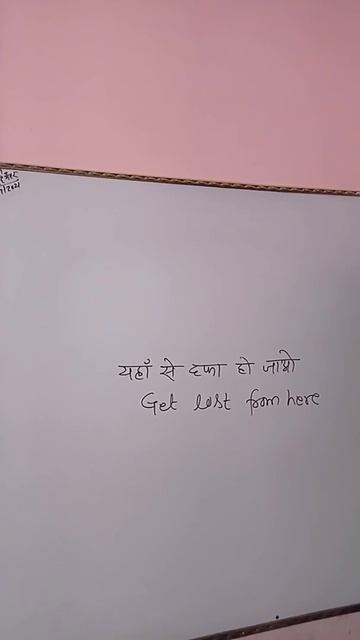 यहाँ से दफा हो जाओ
Get lost from here